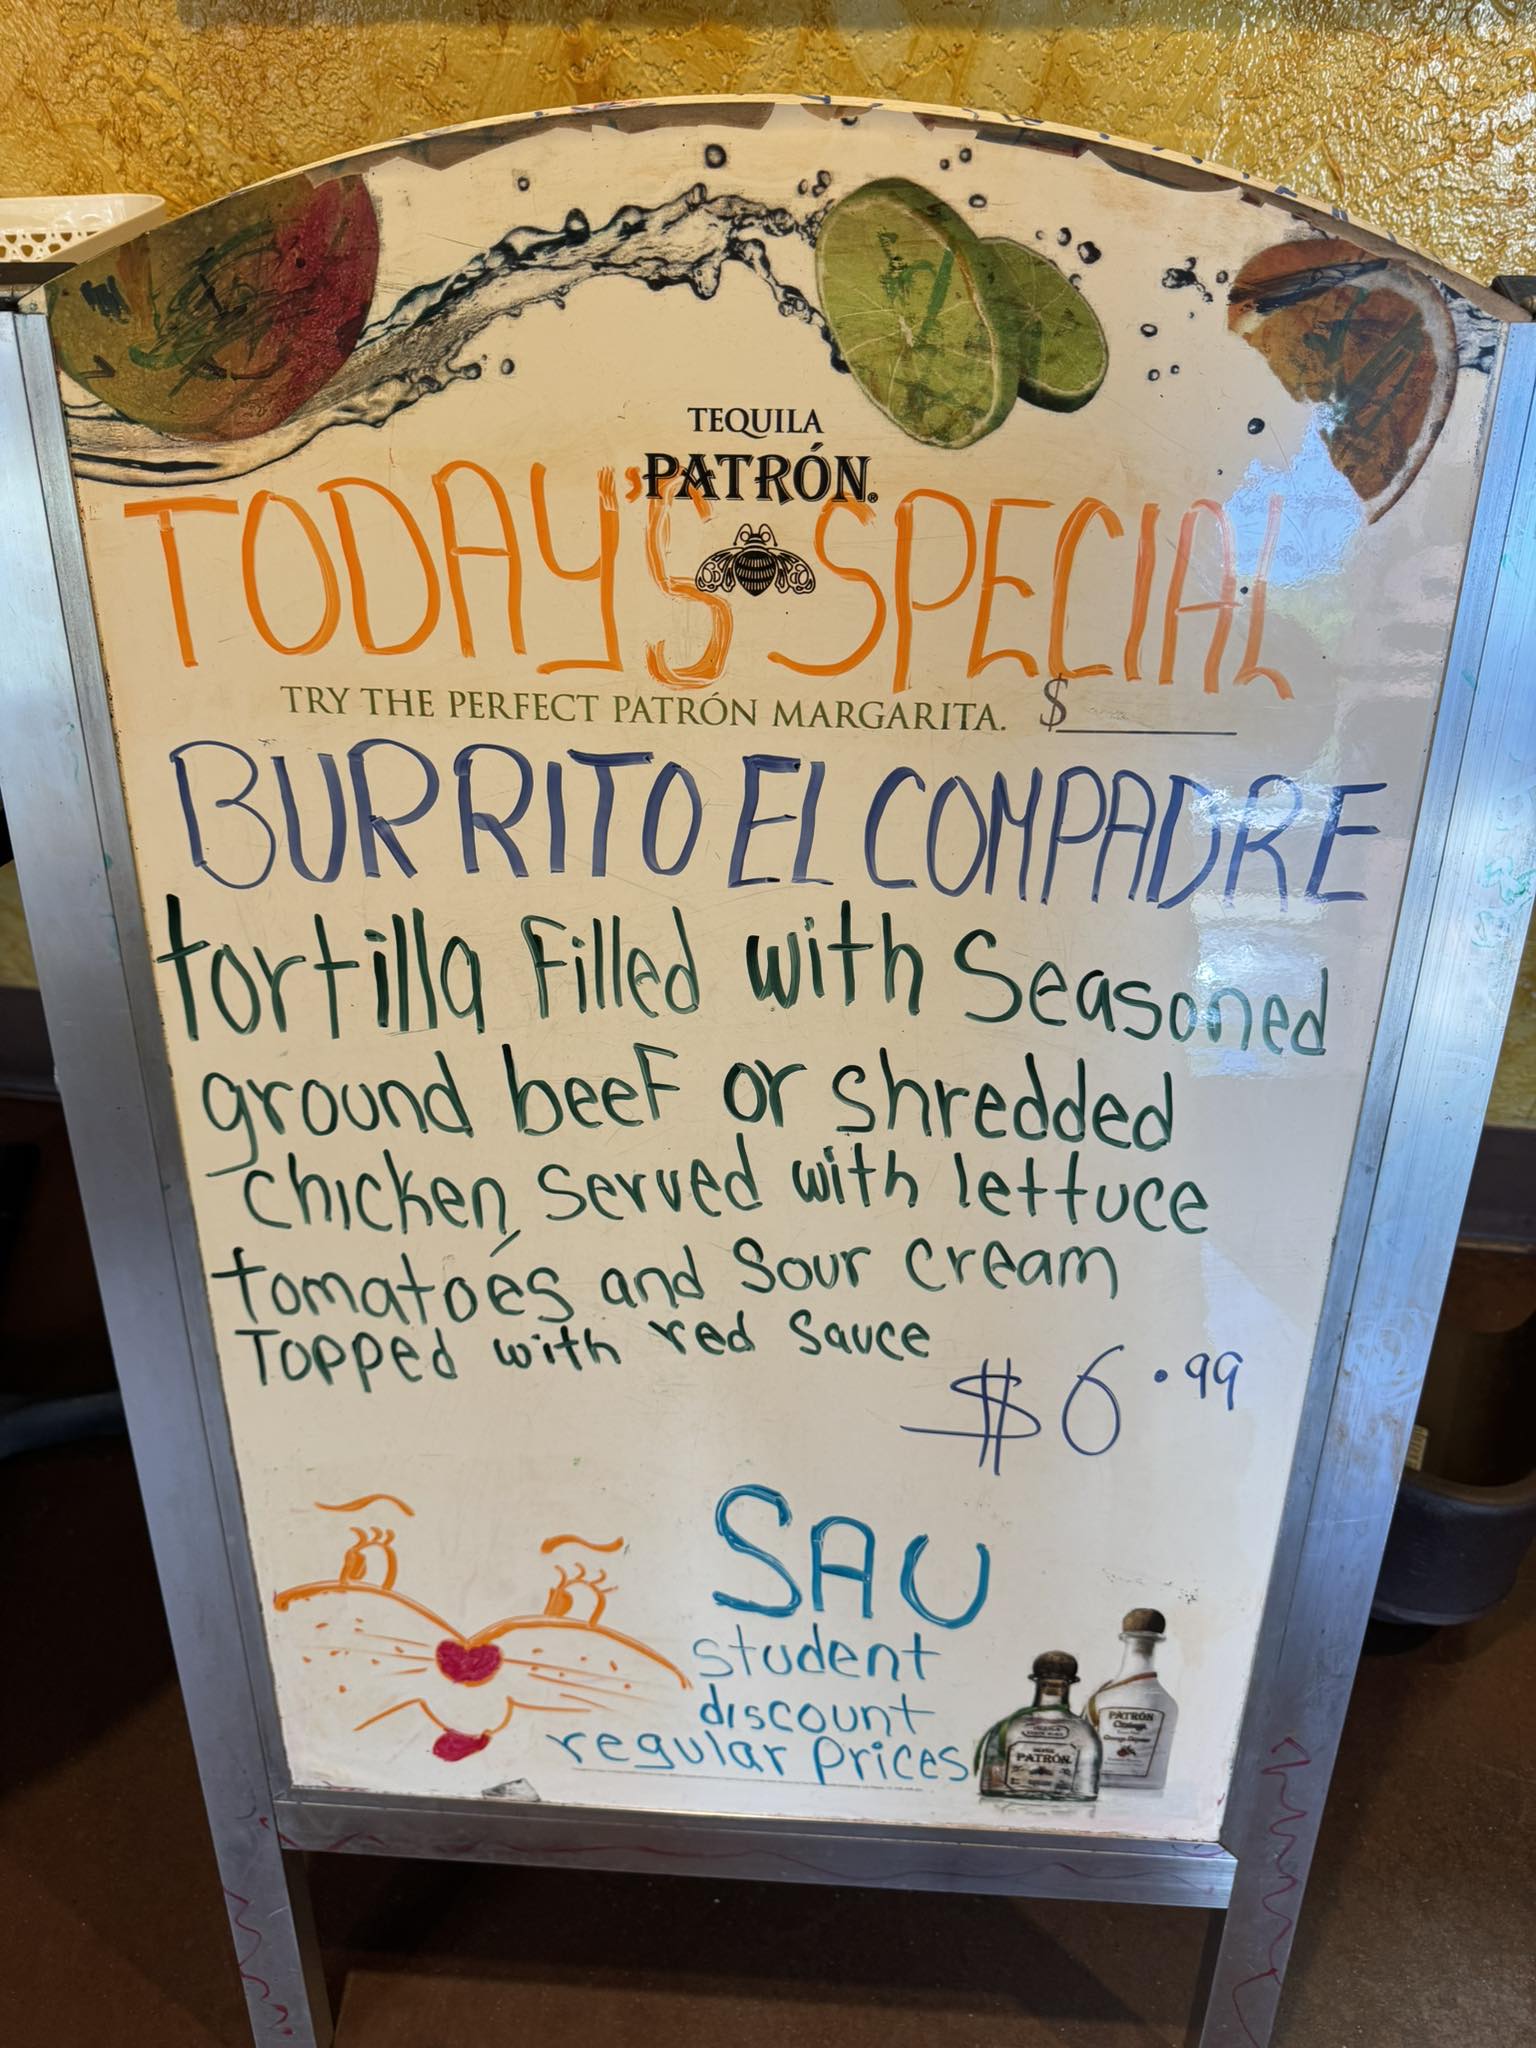 TEQUILA
PATRÓN®
TODAY'S SPECIAL
TRY THE PERFECT PATRÓN MARGARITA. $
BURRITO EL COMPADRE
tortilla filled with Seasoned
ground beef or shredded
chicken, served with lettuce
tomatoes and sour cream
Topped with red sauce
$6.99
SAU
student
discount
regular prices
PATRÓN
PATRÓN